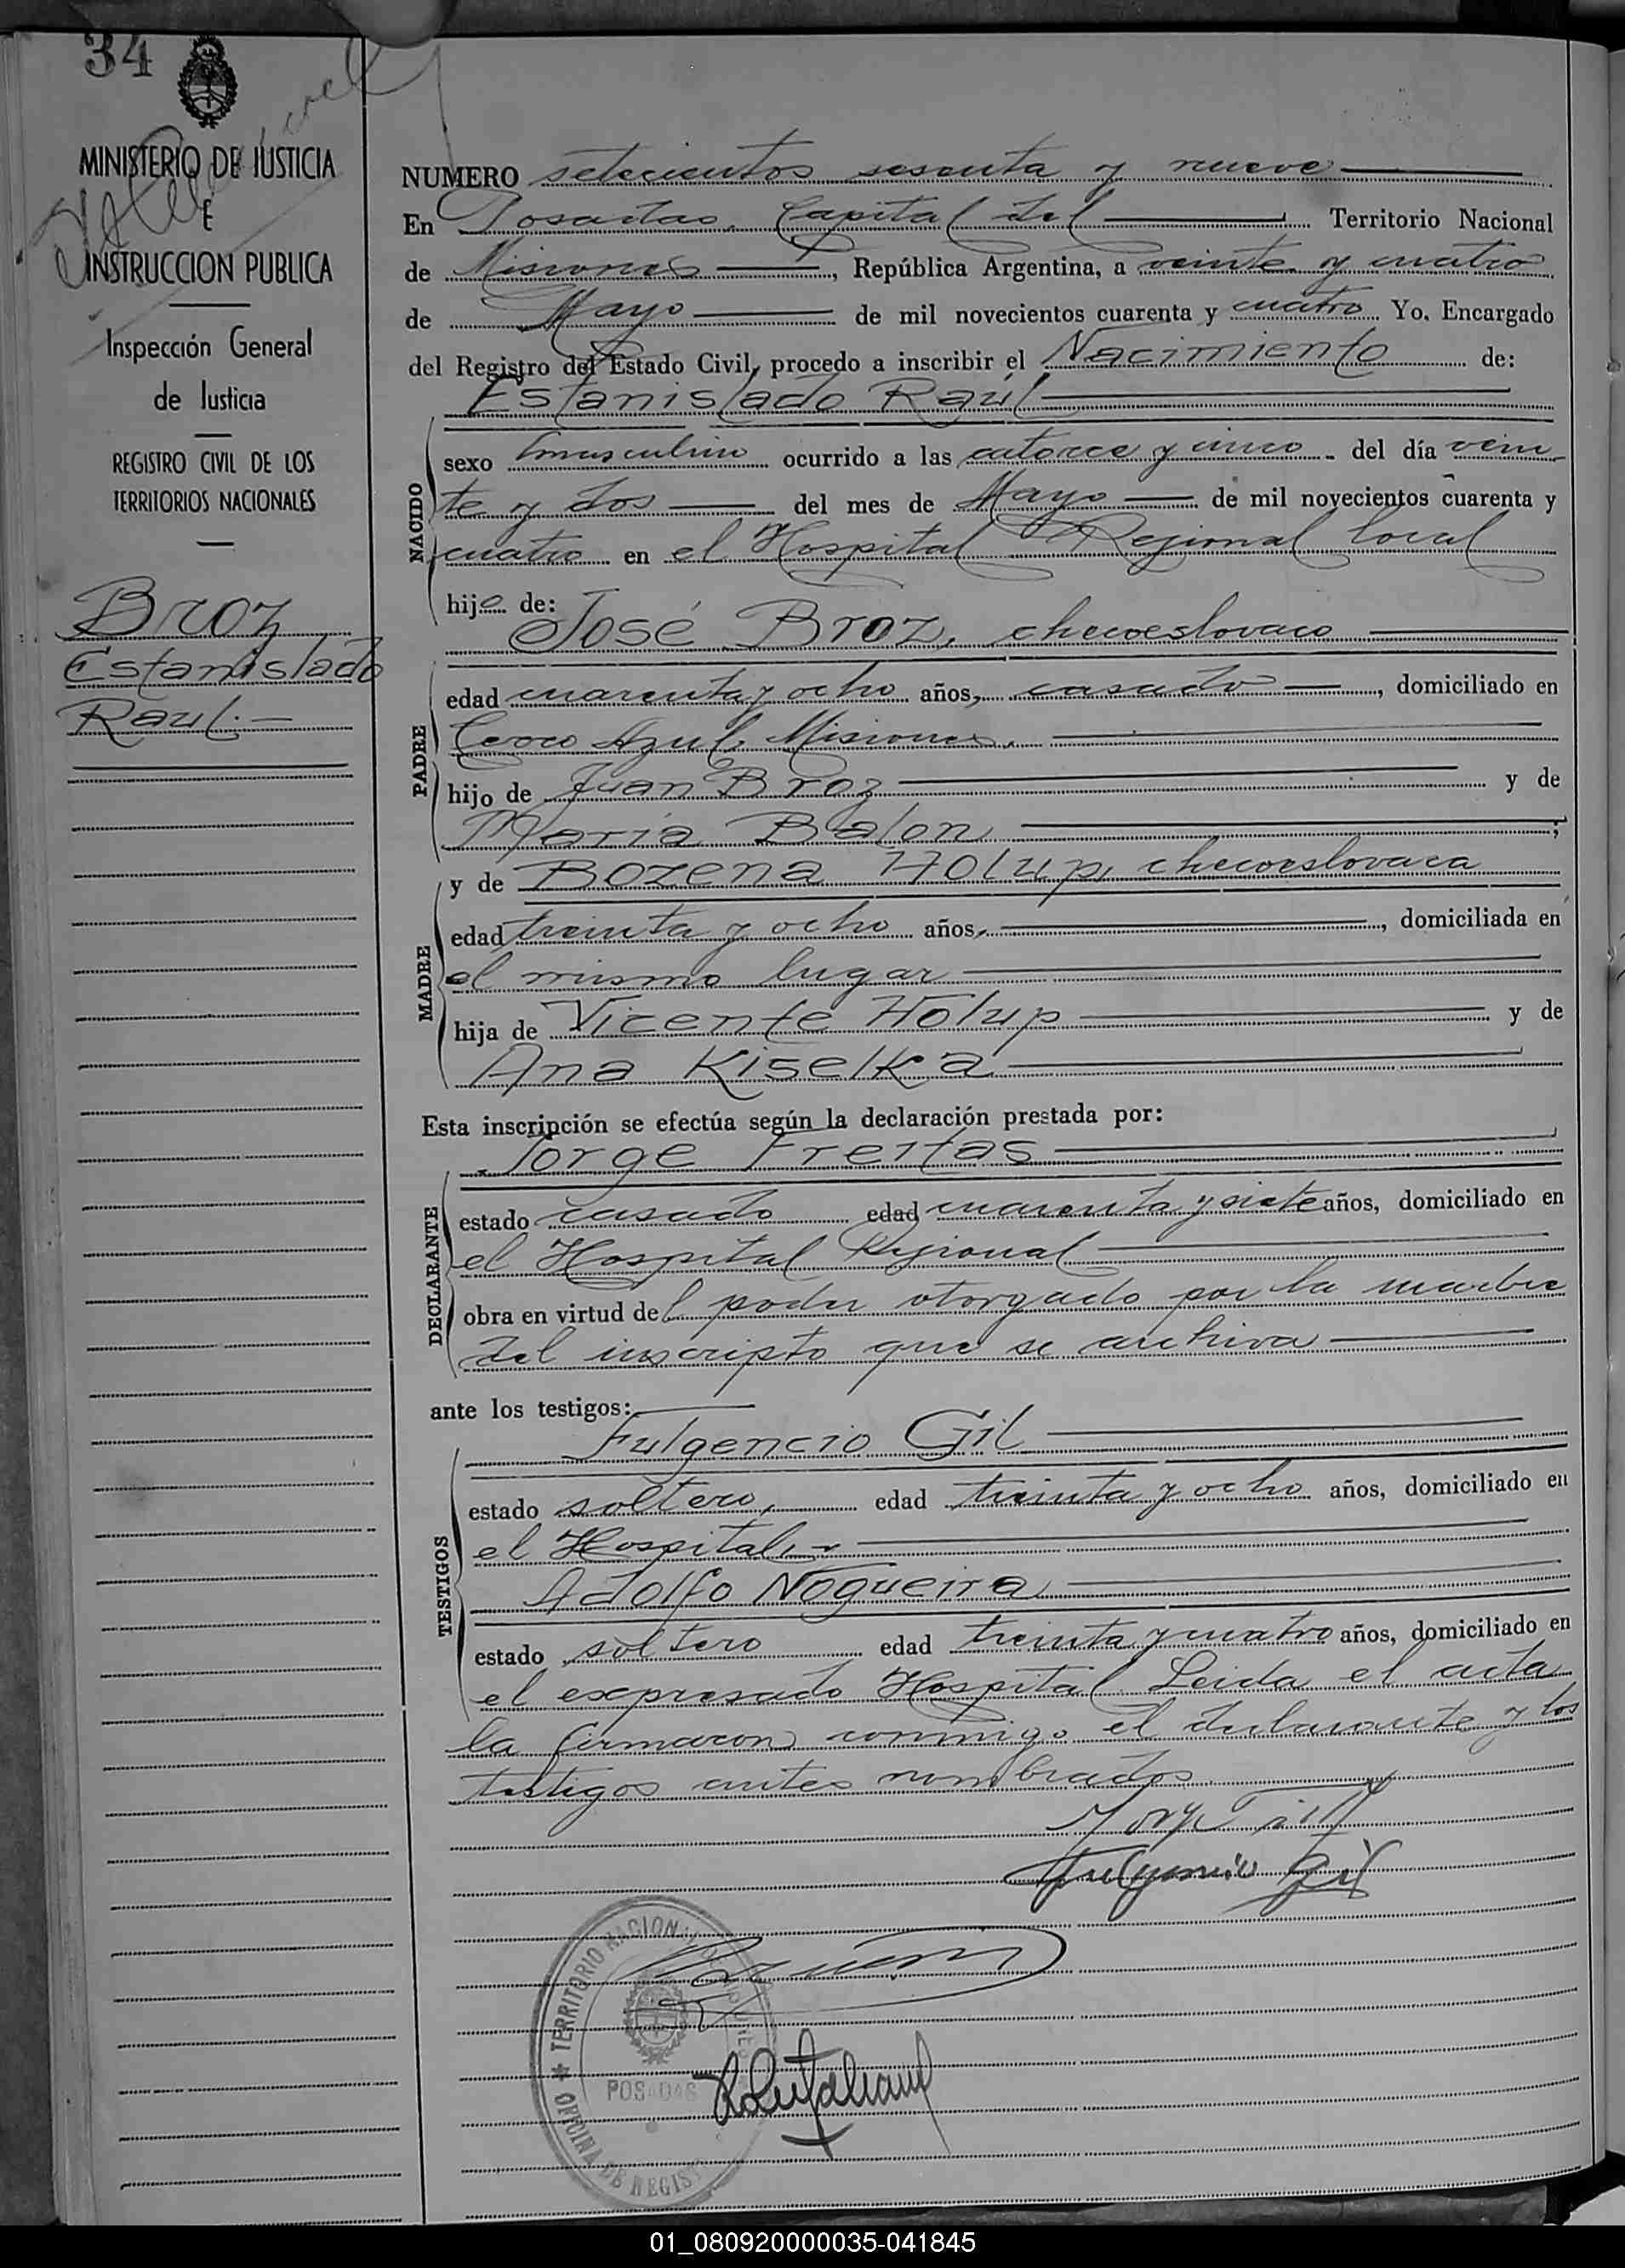 34
MINISTERIO DE JUSTICIA
E
INSTRUCCION PUBLICA
Inspección General
de Justicia
REGISTRO CIVIL DE LOS
TERRITORIOS NACIONALES
Broz
Estanislado
Raul.-
NUMERO setecientos sesenta y nueve
En Posadas, Capital del Territorio Nacional
de Misiones, República Argentina, a veinte y cuatro
de Mayo de mil novecientos cuarenta y cuatro Yo, Encargado
del Registro del Estado Civil, procedo a inscribir el Nacimiento de:
Estanislado Raúl
NACIDO
sexo masculino ocurrido a las catorce y cinco del día vein
te y dos del mes de Mayo de mil novecientos cuarenta y
cuatro en el Hospital Regional local
hijo de:
José Broz, checoeslovaco
PADRE
edad cuarenta y ocho años, casado, domiciliado en
Cerro Azul, Misiones.
hijo de Juan Broz y de
María Balon;
MADRE
y de Bozena Holup, checoeslovaca
edad treinta y ocho años, domiciliada en
el mismo lugar
hija de Vicente Holup y de
Ana Kiselka
Esta inscripción se efectúa según la declaración prestada por:
Jorge Freitas
DECLARANTE
estado casado edad cuarenta y siete años, domiciliado en
el Hospital Regional
obra en virtud del poder otorgado por la madre
del inscripto que se archiva
ante los testigos:
Fulgencio Gil
TESTIGOS
estado soltero, edad treinta y ocho años, domiciliado en
el Hospital,
Adolfo Nogueira
estado soltero edad treinta y cuatro años, domiciliado en
el expresado Hospital. Leida el acta
la firmaron conmigo el declarante y los
testigos antes nombrados
Fulgencio Gil
TERRITORIO NACIONAL
POSADAS
OFICINA DE REGIS
01_080920000035-041845